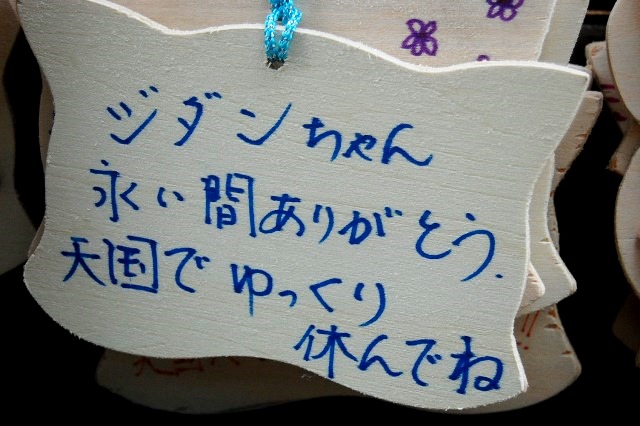 ジダンちゃん
永い間ありがとう.
天国でゆっくり
休んでね